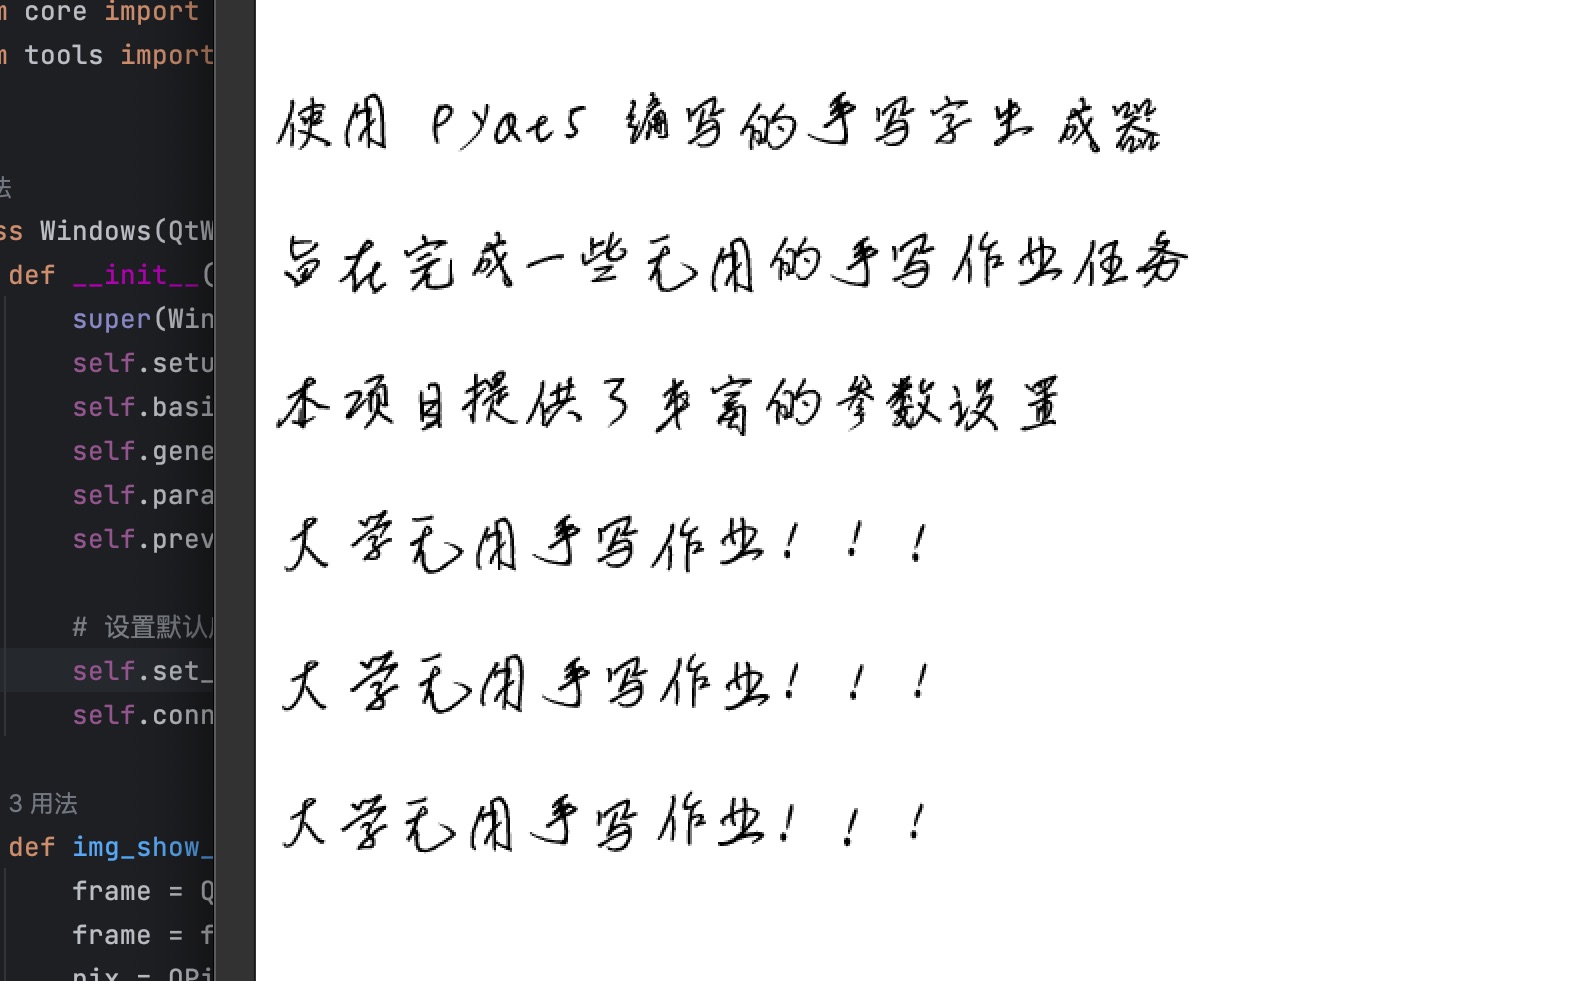 m core import
m tools import
法
ss Windows(QtW
def __init__(
super(Win
self.setu
self.basi
self.gene
self.para
self.prev
# 设置默认
self.set_
self.conn
3 用法
def img_show_
frame = Q
frame = f
pix = QPi
使用 PyQt5 编写的手写字生成器
旨在完成一些无用的手写作业任务
本项目提供了丰富的参数设置
大学无用手写作业！！！
大学无用手写作业！！！
大学无用手写作业！！！